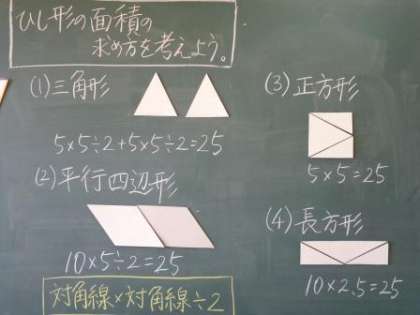 ひし形の面積の
求め方を考えよう。
(1)三角形
5×5÷2+5×5÷2=25
(2)平行四辺形
10×5÷2=25
対角線×対角線÷2
(3)正方形
5×5=25
(4)長方形
10×2.5=25